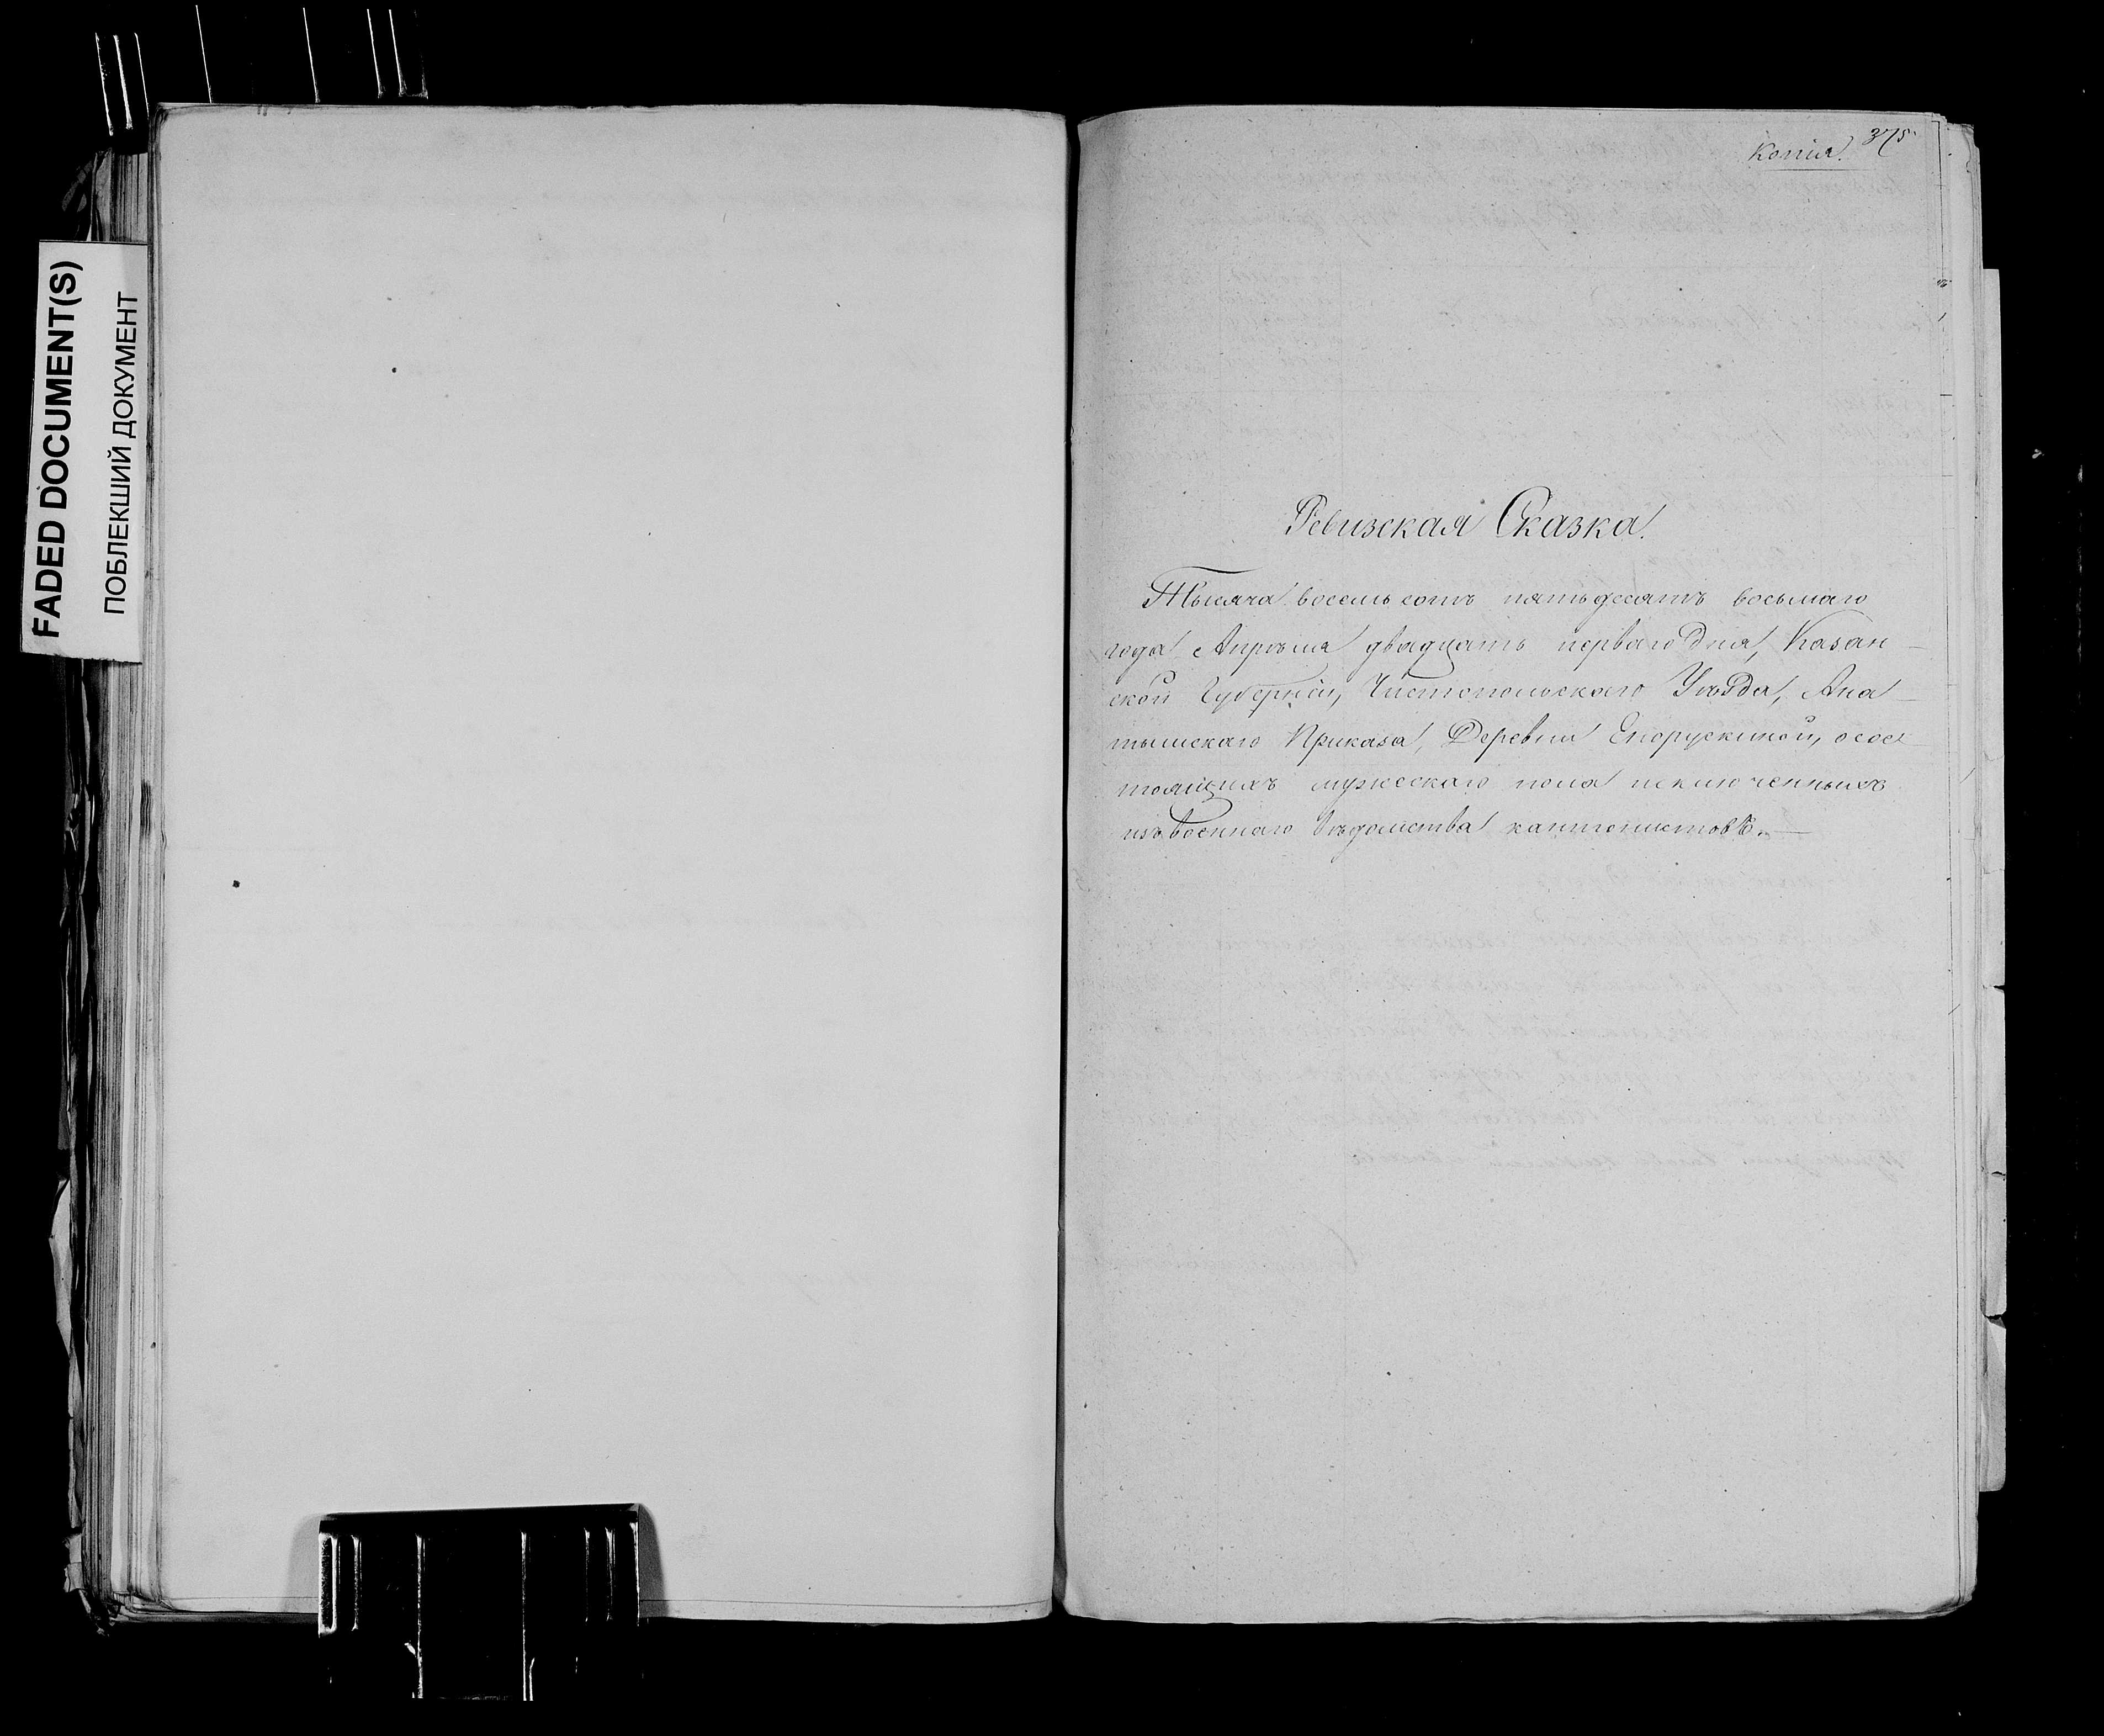 FADED DOCUMENT(S)
ПОБЛЕКШИЙ ДОКУМЕНТ
375
Копія.
Ревизская Сказка.
Тысяча восемь сотъ пятьдесятъ восьмаго
года Апрѣля двадцать перваго Дня, Казан-
ской Губерніи, Чистопольскаго Уѣзда, Ана-
тышскаго Приказа, Деревни Епорускиной, осос-
тоящихъ мужескаго пола исключенныхъ
изъ военнаго вѣдомства кантонистовъ.